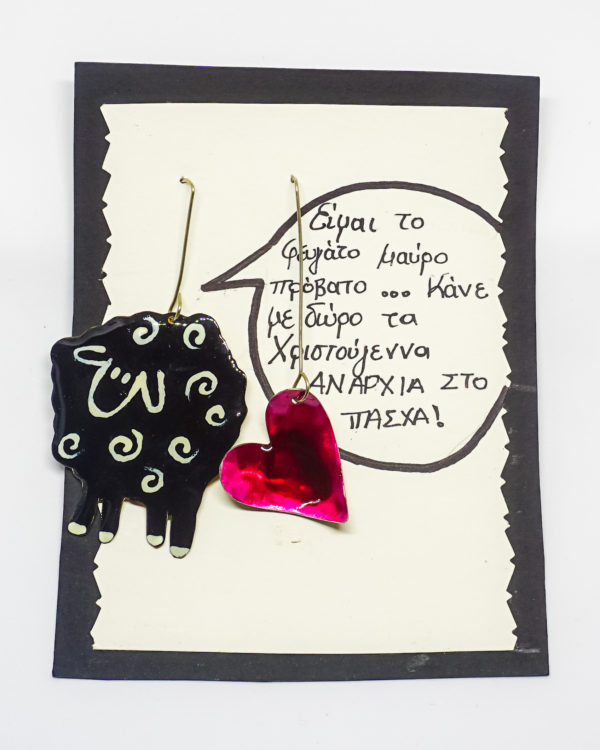 Είμαι το
φευγάτο μαύρο
πρόβατο ... Κάνε
με δώρο τα
Χριστούγεννα
ΑΝΑΡΧΙΑ ΣΤΟ
ΠΑΣΧΑ!